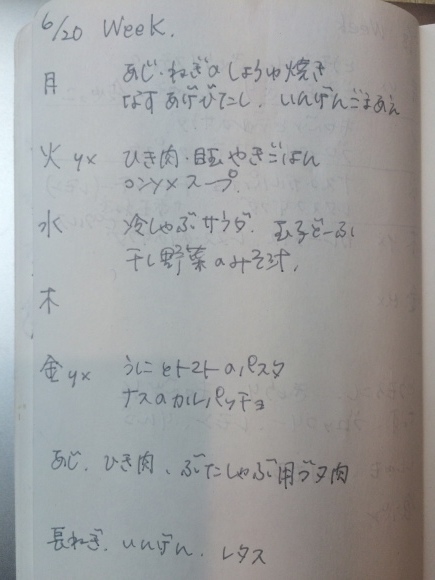 6/20 Week.
月 あじ・ねぎのしょうゆ焼き
なすあげびたし、いんげんごまあえ
火 yx ひき肉・目玉やきごはん
コンソメスープ
水 冷しゃぶサラダ、玉子どーふ
干し野菜のみそ汁、
木
金 yx うにとトマトのパスタ
ナスのカルパッチョ
あじ、ひき肉、ぶたしゃぶ用ブタ肉
長ねぎ、いんげん、レタス